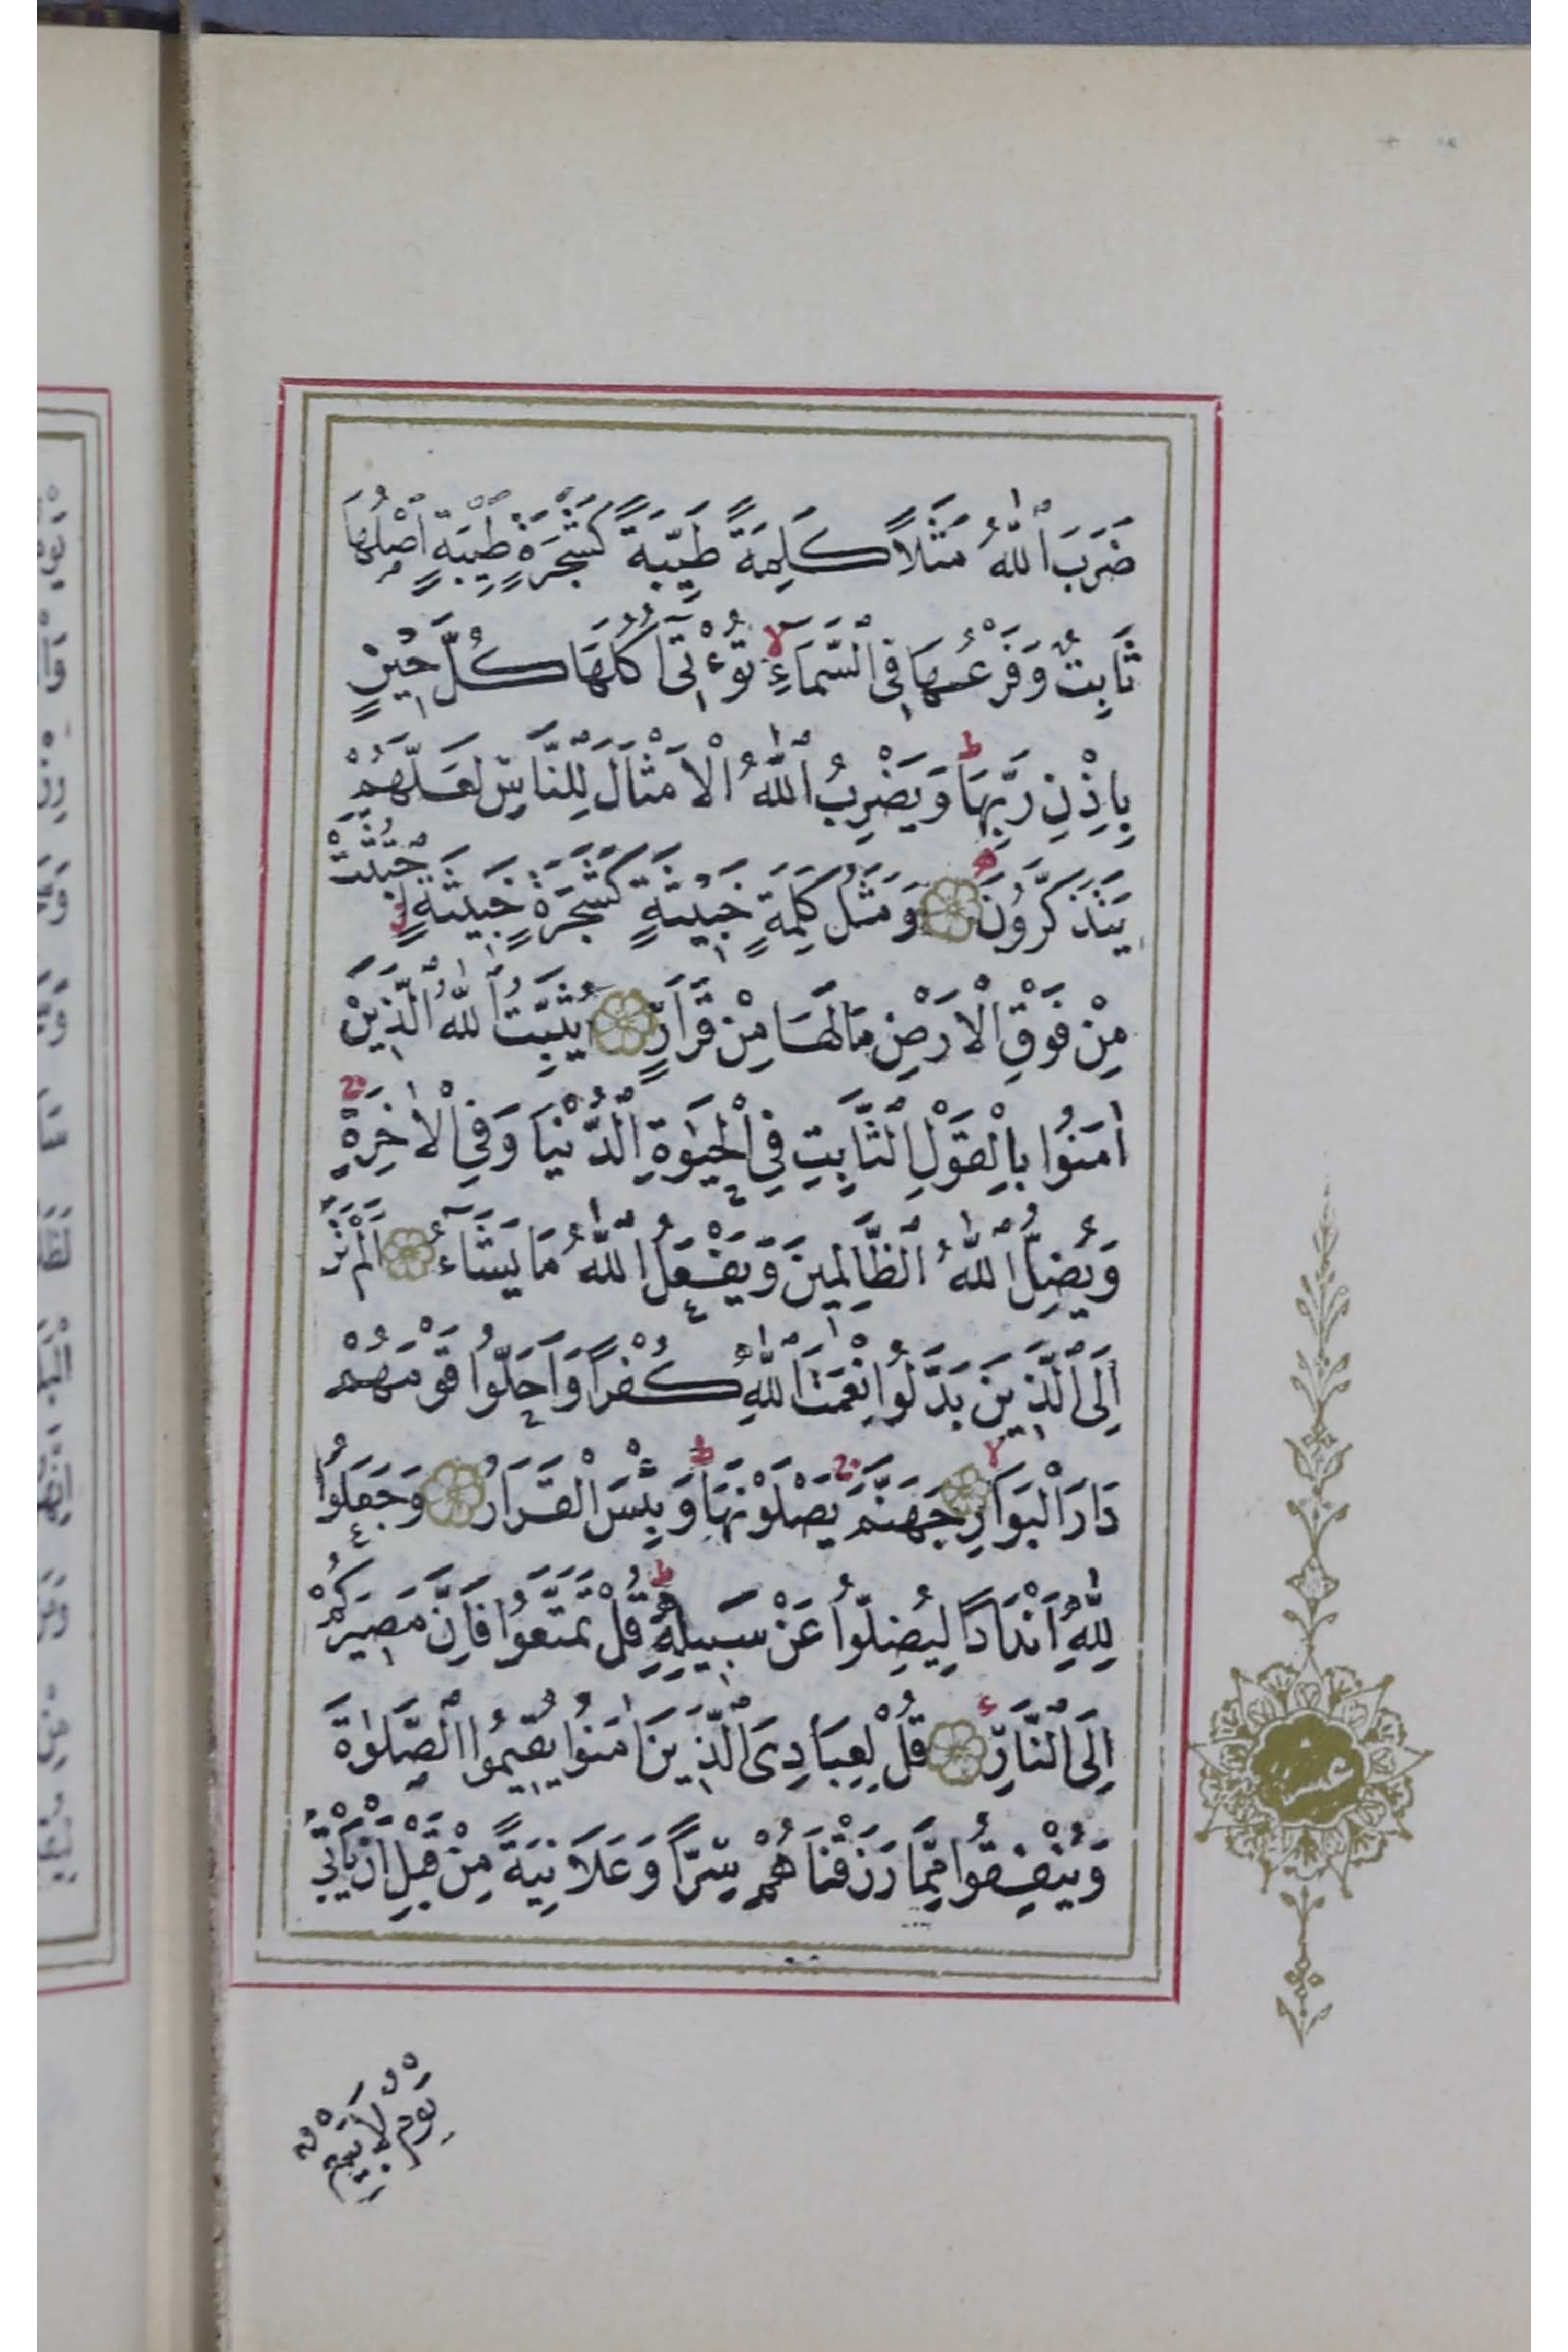 ضَرَبَ ٱللّٰهُ مَثَلًا كَلِمَةً طَيِّبَةً كَشَجَرَةٍ طَيِّبَةٍ اَصْلُهَا
ثَابِتٌ وَفَرْعُهَا فِي ٱلسَّمَاءِ لا تُؤْتِى اُكُلَهَا كُلَّ حِينٍ
بِاِذْنِ رَبِّهَا ط وَيَضْرِبُ ٱللّٰهُ الْاَمْثَالَ لِلنَّاسِ لَعَلَّهُمْ
يَتَذَكَّرُونَ وَمَثَلُ كَلِمَةٍ خَبِيثَةٍ كَشَجَرَةٍ خَبِيثَةٍ اِجْتُثَّتْ
مِنْ فَوْقِ الْاَرْضِ مَالَهَا مِنْ قَرَارٍ يُثَبِّتُ ٱللّٰهُ ٱلَّذِينَ
اٰمَنُوا بِالْقَوْلِ ٱلثَّابِتِ فِي الْحَيٰوةِ ٱلدُّنْيَا وَفِي الْاٰخِرَةِ ج
وَيُضِلُّ ٱللّٰهُ ٱلظَّالِمِينَ وَيَفْعَلُ ٱللّٰهُ مَا يَشَآءُ اَلَمْ تَرَ
اِلَى ٱلَّذِينَ بَدَّلُوا نِعْمَتَ ٱللّٰهِ كُفْرًا وَاَحَلُّوا قَوْمَهُمْ
دَارَ الْبَوَارِ لا جَهَنَّمَ ج يَصْلَوْنَهَا ط وَبِئْسَ الْقَرَارُ وَجَعَلُوا
لِلّٰهِ اَنْدَادًا لِيُضِلُّوا عَنْ سَبِيلِهِ ط قُلْ تَمَتَّعُوا فَاِنَّ مَصِيرَكُمْ
اِلَى ٱلنَّارِ قُلْ لِعِبَادِىَ ٱلَّذِينَ اٰمَنُوا يُقِيمُوا ٱلصَّلٰوةَ
وَيُنْفِقُوا مِمَّا رَزَقْنَاهُمْ سِرًّا وَعَلَانِيَةً مِنْ قَبْلِ اَنْ يَاْتِيَ
يَوْمٌ لَا بَيْعٌ
عشر